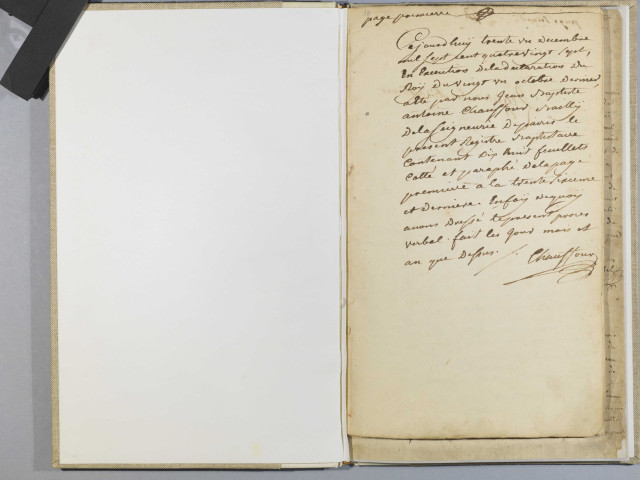 page premierre
Cejourdhuy trente un decembre
mil sept cent quatre vingt sept,
En Execution dela declaration du
Roy du vingt un octobre dernier
a été par nous Jean Baptiste
antoine Chauffour Bailly
dela Seigneurie de paris le
present Registre Baptistaire
Contenant dix huit feuillets
Cotté et paraphé dela page
premiere a la trente sixieme
et derniere. En foy dequoy
avons dressé le present proces
verbal. fait les jour mois et
an que dessus.
Chauffour